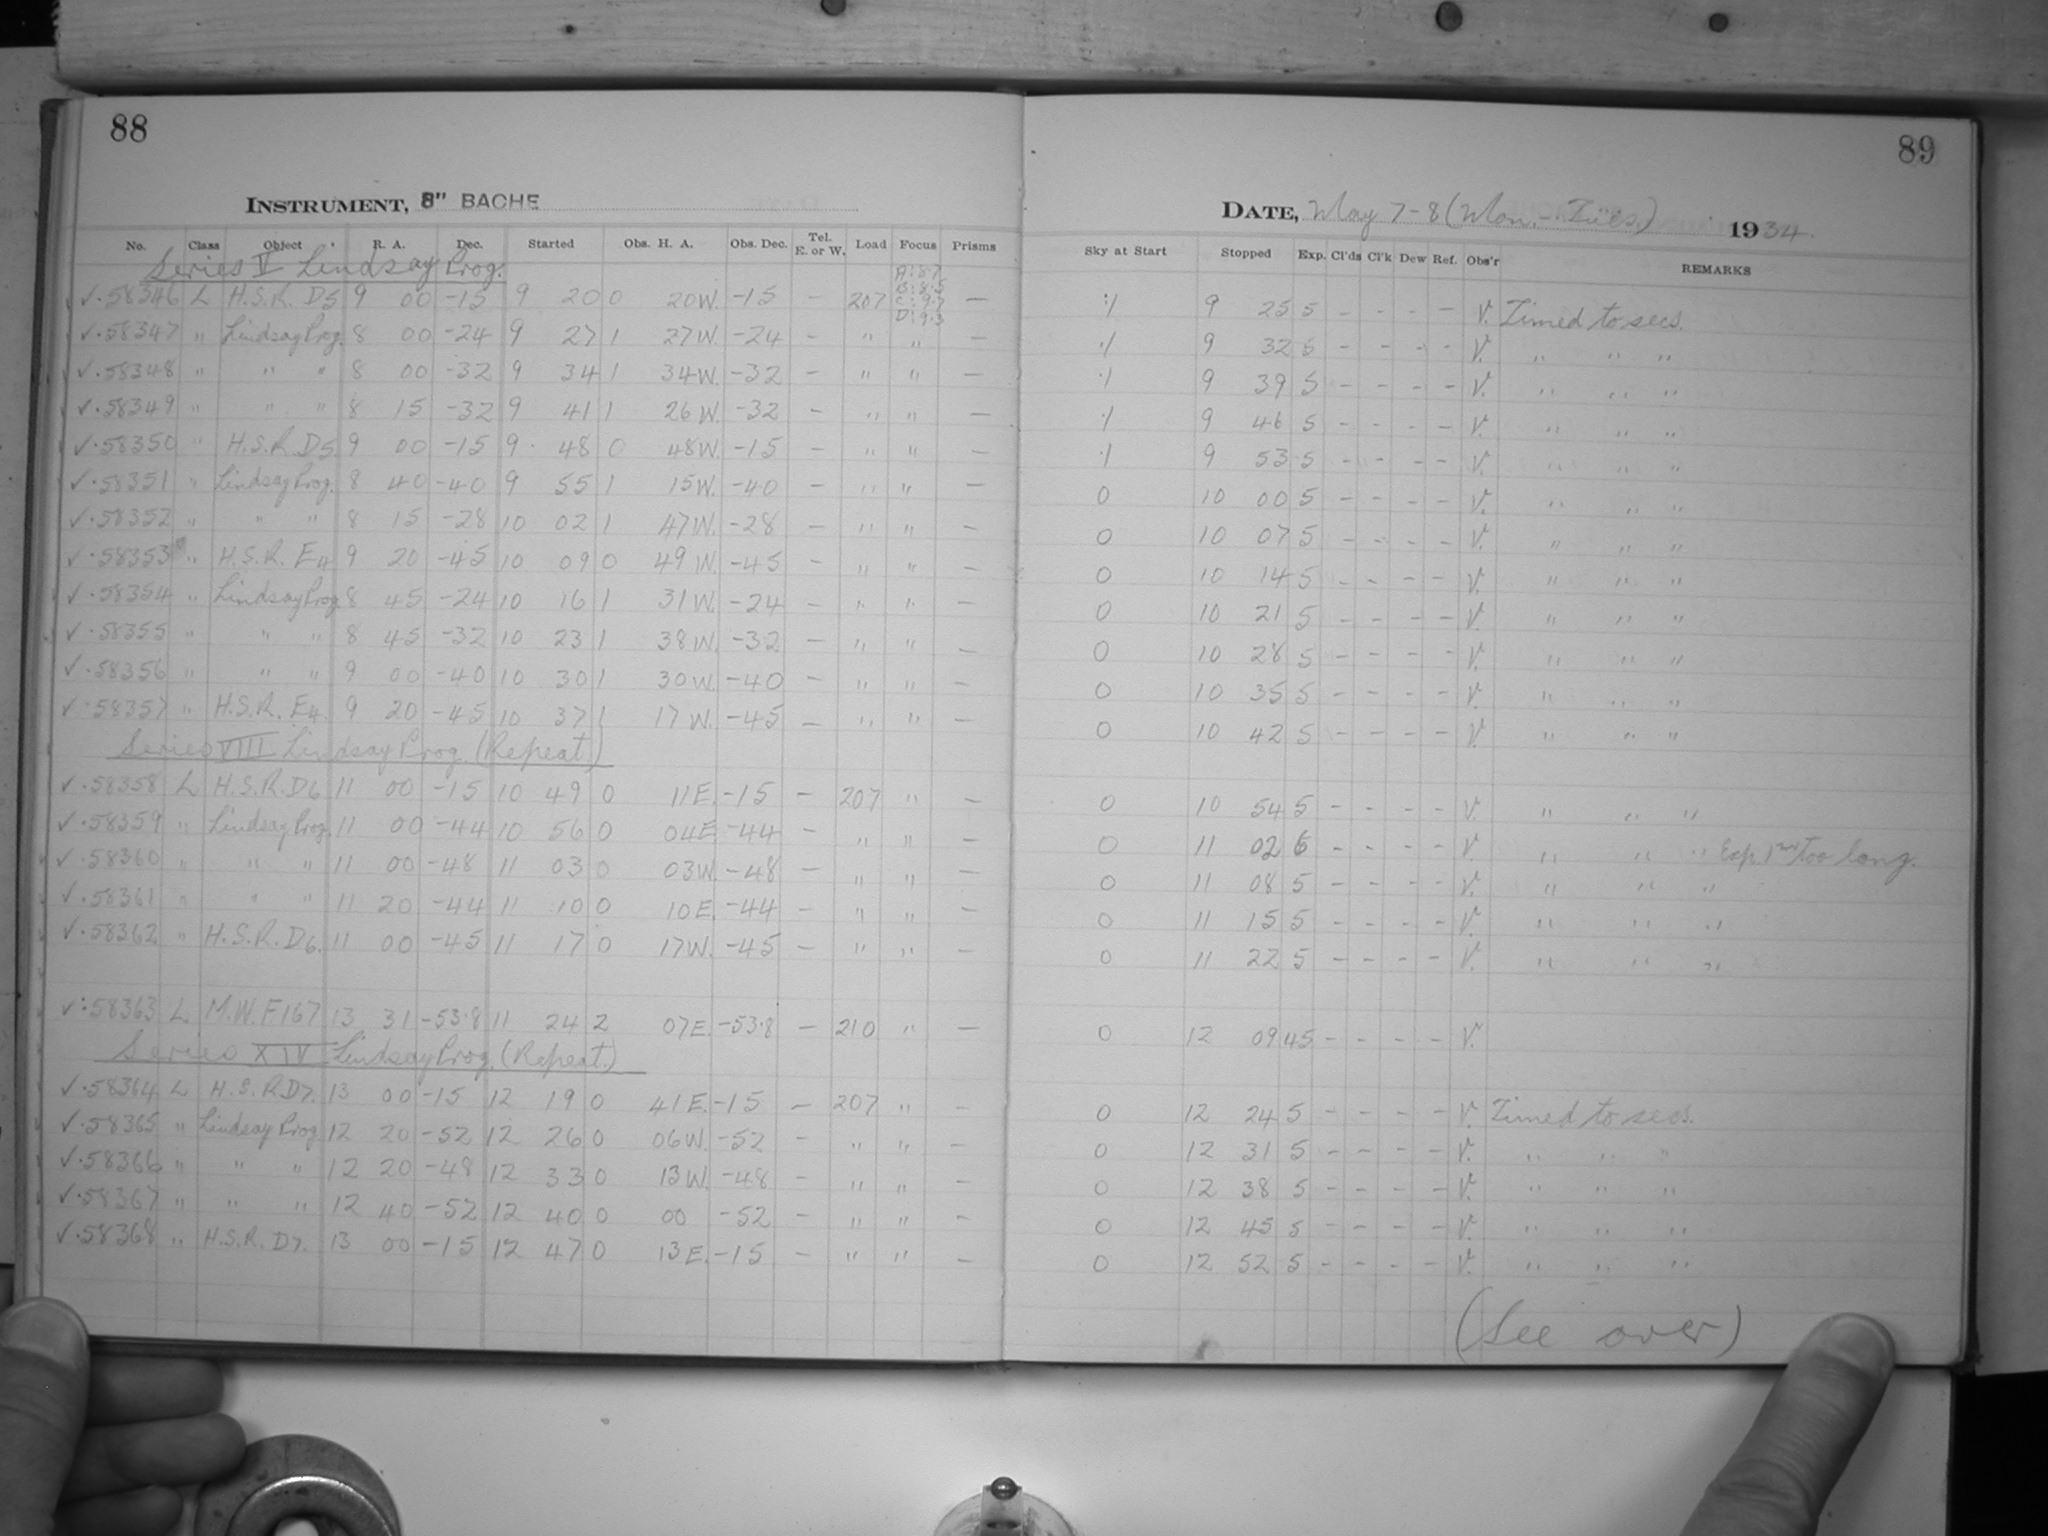 88
INSTRUMENT, 8" BACHE
No. Class Object R. A. Dec. Started Obs. H. A. Obs. Dec. Tel. E. or W. Load Focus Prisms
Series V Lindsay Prog.
A:8.7
B:8.5
C:9.7
D:9.3
✓.58346 L H.S.R. D5 9 00 -15 9 20 0 20W. -15 - 207 -
✓.58347 " Lindsay Prog. 8 00 -24 9 27 1 27W. -24 - " " -
✓.58348 " " " 8 00 -32 9 34 1 34W. -32 - " " -
✓.58349 " " " 8 15 -32 9 41 1 26W. -32 - " " -
✓.58350 " H.S.R. D5. 9 00 -15 9 48 0 48W. -15 - " " -
✓.58351 " Lindsay Prog. 8 40 -40 9 55 1 15W. -40 - " " -
✓.58352 " " " 8 15 -28 10 02 1 47W. -28 - " " -
✓.58353 " H.S.R. E4 9 20 -45 10 09 0 49W. -45 - " " -
✓.58354 " Lindsay Prog. 8 45 -24 10 16 1 31W. -24 - " " -
✓.58355 " " " 8 45 -32 10 23 1 38W. -32 - " " -
✓.58356 " " " 9 00 -40 10 30 1 30W. -40 - " " -
✓.58357 " H.S.R. E4. 9 20 -45 10 37 1 17W. -45 - " " -
Series VIII Lindsay Prog. (Repeat)
✓.58358 L H.S.R. D6 11 00 -15 10 49 0 11E. -15 - 207 " -
✓.58359 " Lindsay Prog. 11 00 -44 10 56 0 04E. -44 - " " -
✓.58360 " " " 11 00 -48 11 03 0 03W. -48 - " " -
✓.58361 " " " 11 20 -44 11 10 0 10E. -44 - " " -
✓.58362 " H.S.R. D6. 11 00 -45 11 17 0 17W. -45 - " " -
✓.58363 L M.W.F 167 13 31 -53.8 11 24 2 07E. -53.8 - 210 " -
Series XIV Lindsay Prog. (Repeat.)
✓.58364 L H.S.R. D7. 13 00 -15 12 19 0 41E. -15 - 207 " -
✓.58365 " Lindsay Prog. 12 20 -52 12 26 0 06W. -52 - " " -
✓.58366 " " " 12 20 -48 12 33 0 13W. -48 - " " -
✓.58367 " " " 12 40 -52 12 40 0 00 -52 - " " -
✓.58368 " H.S.R. D7. 13 00 -15 12 47 0 13E. -15 - " " -
89
DATE, May 7-8 (Mon.-Tues.) 1934.
Sky at Start Stopped Exp. Cl'ds Cl'k Dew Ref. Obs'r REMARKS
9 25 5 - - - - V. Timed to secs.
9 32 5 - - - - V. " " "
9 39 5 - - - - V. " " "
9 46 5 - - - - V. " " "
9 53 5 - - - - V. " " "
0 10 00 5 - - - - V. " " "
0 10 07 5 - - - - V. " " "
0 10 14 5 - - - - V. " " "
0 10 21 5 - - - - V. " " "
0 10 28 5 - - - - V. " " "
0 10 35 5 - - - - V. " " "
0 10 42 5 - - - - V. " " "
0 10 54 5 - - - - V. " " "
0 11 02 6 - - - - V. " " " Exp. 1m too long.
0 11 08 5 - - - - V. " " "
0 11 15 5 - - - - V. " " "
0 11 22 5 - - - - V. " " "
0 12 09 45 - - - - V.
0 12 24 5 - - - - V. Timed to secs.
0 12 31 5 - - - - V. " " "
0 12 38 5 - - - - V. " " "
0 12 45 5 - - - - V. " " "
0 12 52 5 - - - - V. " " "
(See over)